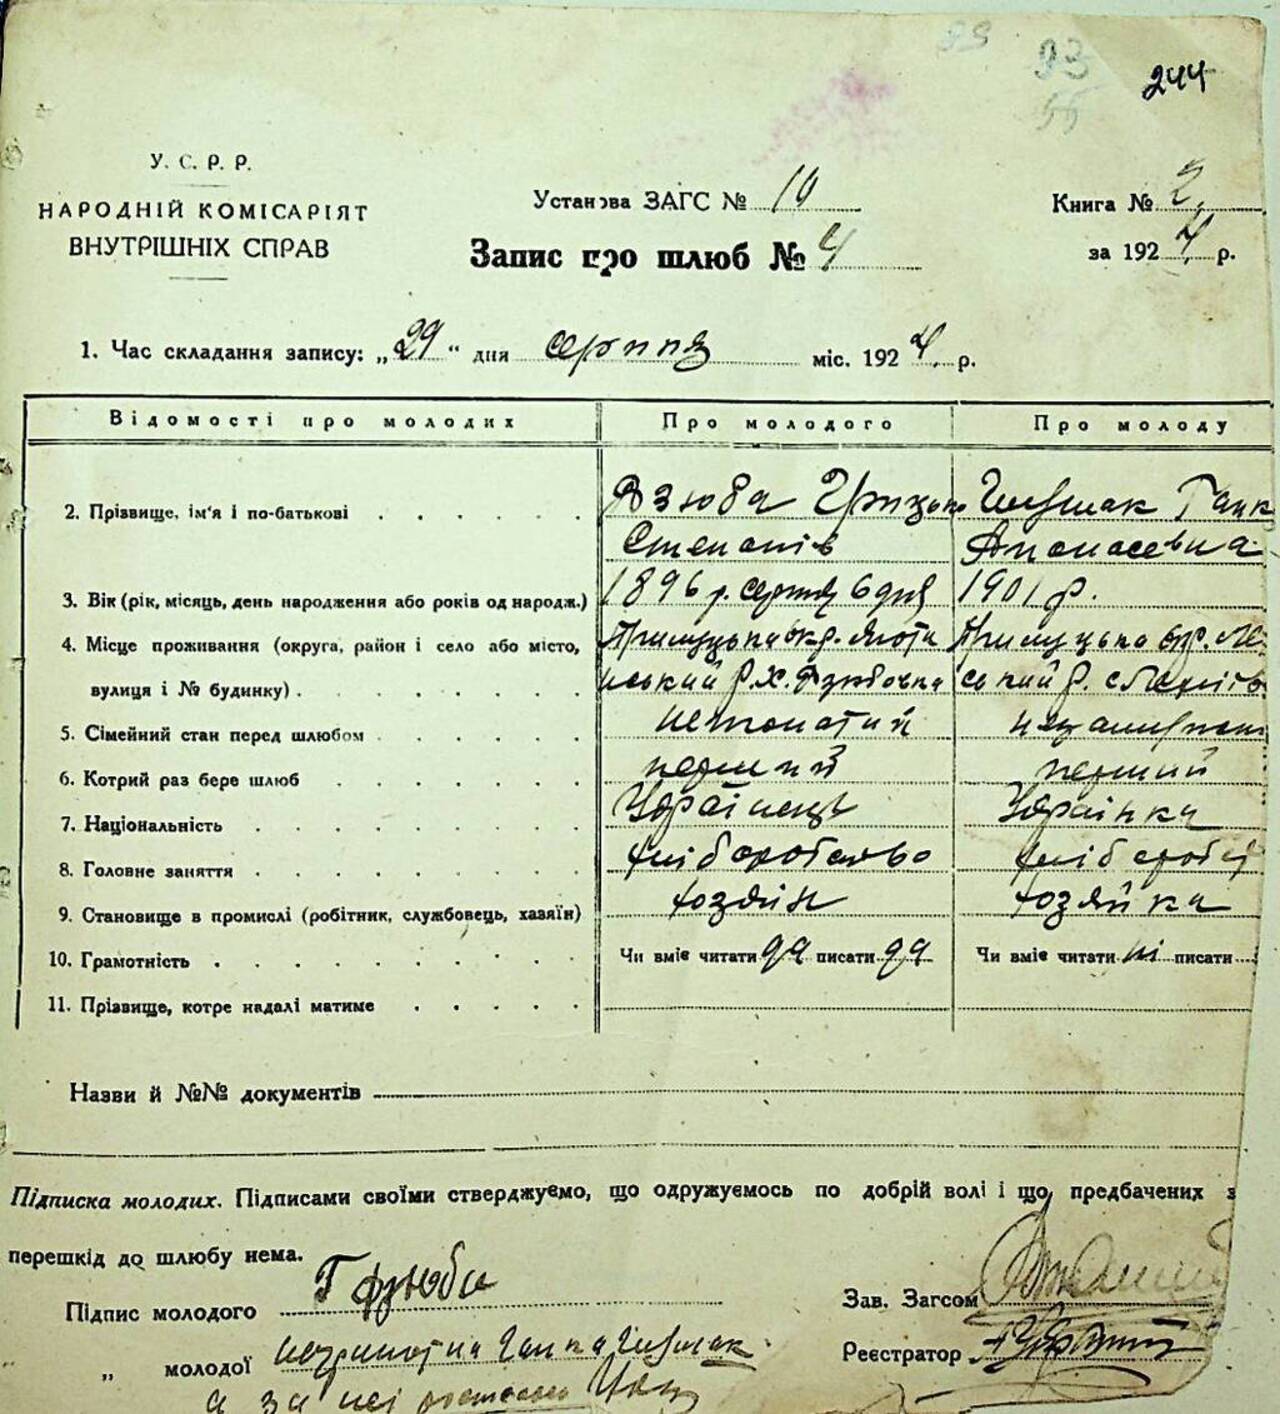 93
244
У. С. Р. Р.
НАРОДНІЙ КОМІСАРІЯТ
ВНУТРІШНІХ СПРАВ
Установа ЗАГС № 10
Книга № 2
Запис про шлюб № 4
за 1924 р.
1. Час складання запису: „29" дня серпня міс. 1924 р.
Відомості про молодих Про молодого Про молоду
2. Прізвище, ім'я і по-батькові
Дзюба Грицько
Степанів
Ганк
Апанасевна
3. Вік (рік, місяць, день народження або років од народж.) 1896 р. серпня 6 дня 1901 р.
4. Місце проживання (округа, район і село або місто,
Прилуцька окр. Яготи
Прилуцька окр.
вулиця і № будинку)
нський р. х.
ський р. с
5. Сімейний стан перед шлюбом нежонатий
6. Котрий раз бере шлюб перший перший
7. Національність Українець Українка
8. Головне заняття хліборобство хлібороб
9. Становище в промислі (робітник, службовець, хазяїн) хозяїн хозяйка
10. Грамотність Чи вміє читати да писати да Чи вміє читати ні писати
11. Прізвище, котре надалі матиме
Назви й №№ документів
Підписка молодих. Підписами своїми стверджуємо, що одружуємось по добрій волі і що, предбачених з
перешкід до шлюбу нема.
Підпис молодого Г Дзюба
Зав. Загсом
„ молодої неграмотна Ганна
Реєстратор
а за неї